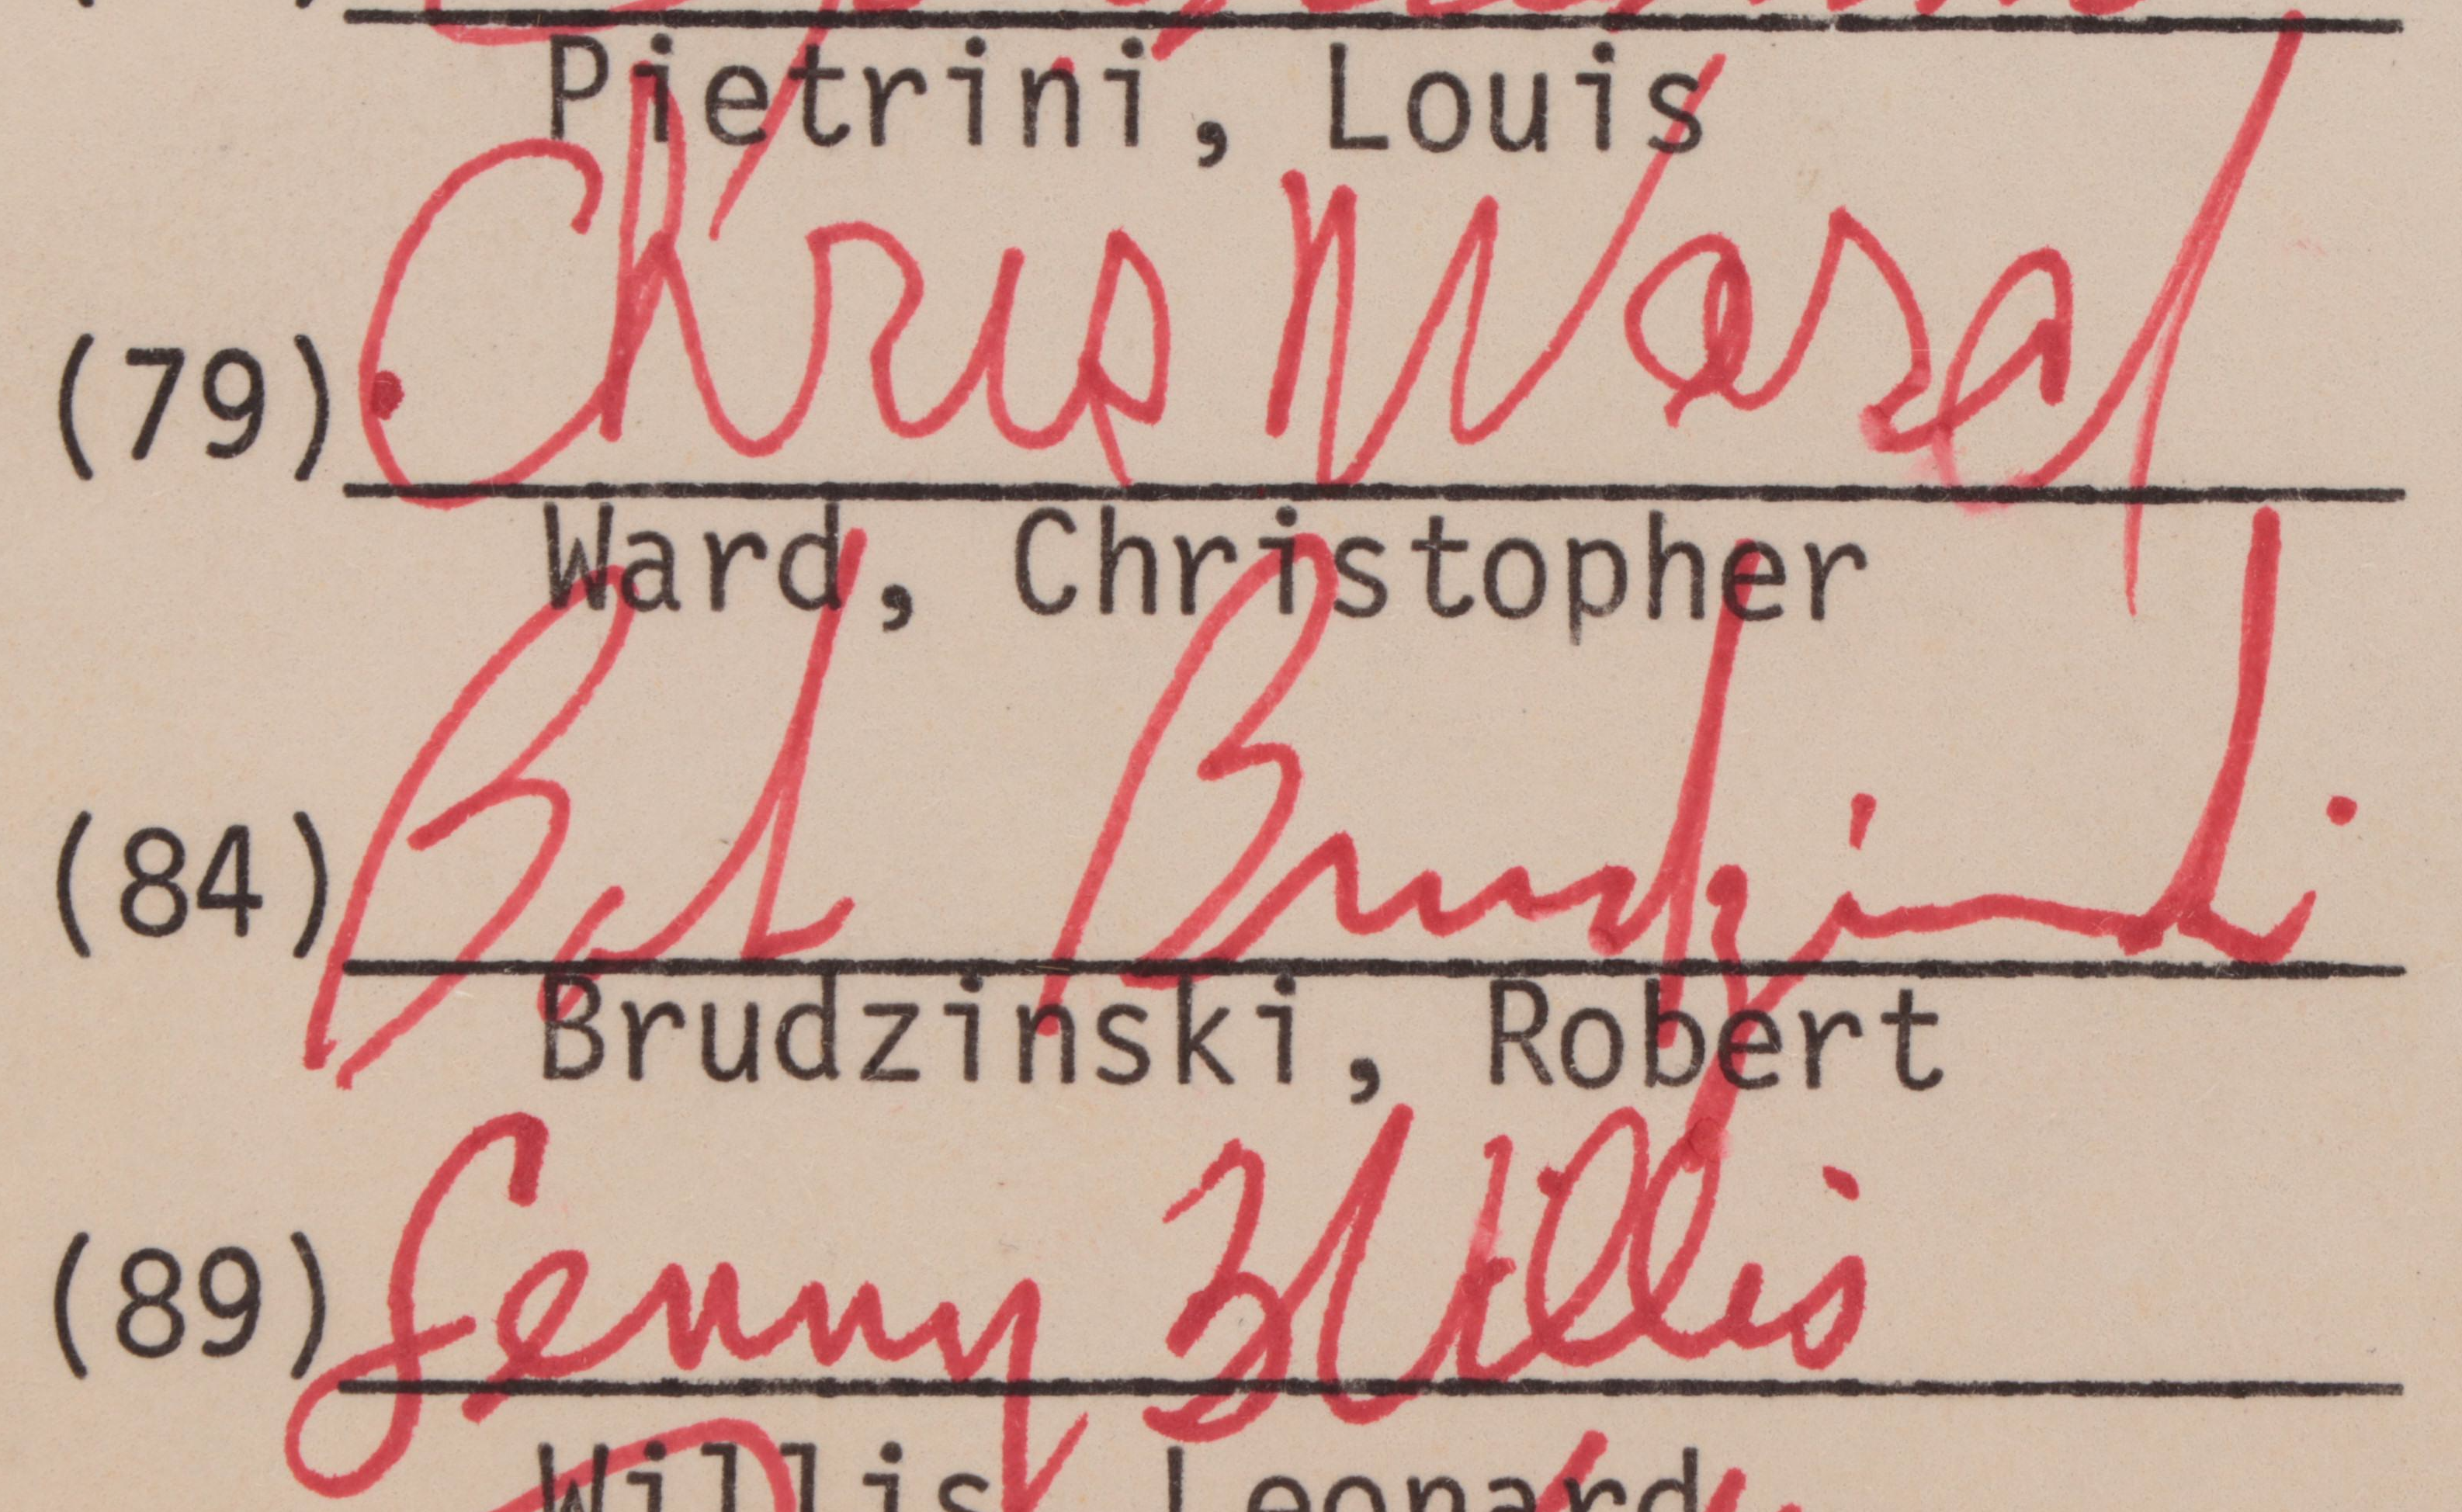 Pietrini, Louis
(79) Chris Ward
Ward, Christopher
(84) Bob Brudzinski
Brudzinski, Robert
(89) Lenny Willis
Willis, Leonard